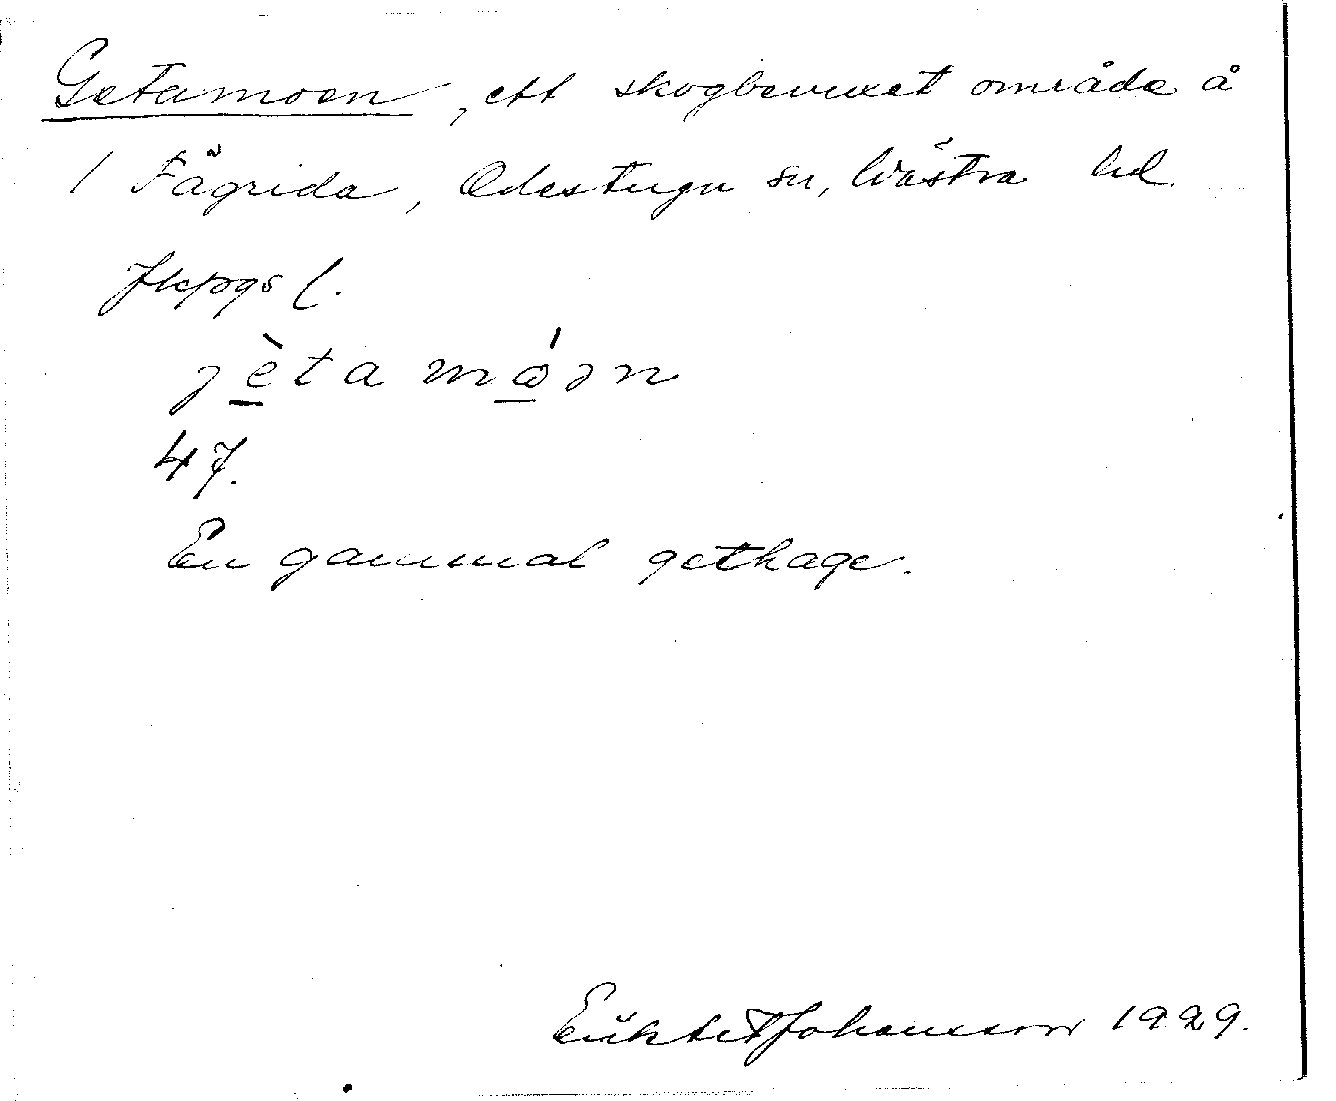 Getamoen, ett skogbevuxet område å
1 Fågrida, Ödestugu sn, Västra hd
Jkpgs l.
jèta móən
47.
En gammal gethage.
Johansson 1929.